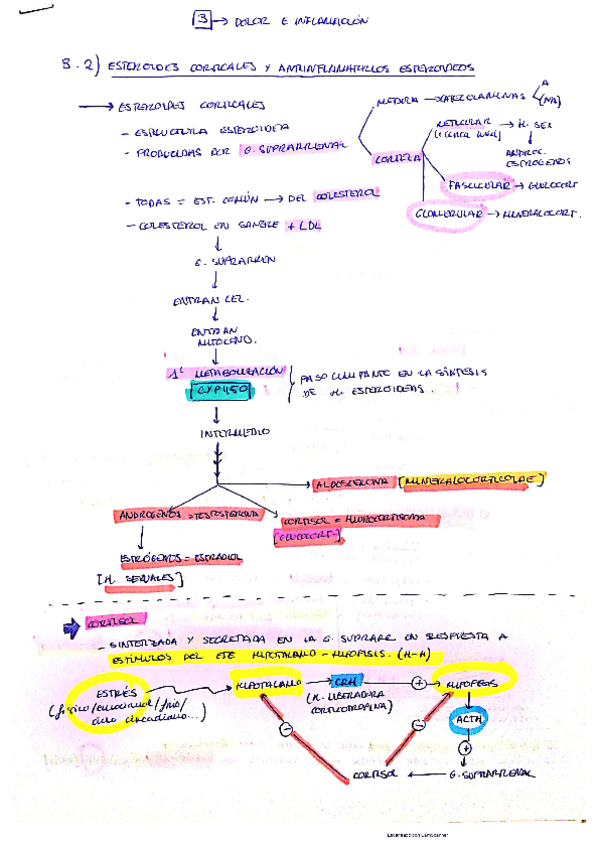 3 → DOLOR E INFLAMACIÓN
3.2) ESTEROIDES CORTICALES Y ANTIINFLAMATORIOS ESTEROIDEOS
→ ESTEROIDES CORTICALES
- ESTRUCTURA ESTEROIDEA
- PRODUCIDAS POR G. SUPRARRENAL
MÉDULA → CATECOLAMINAS
A
(NA)
CORTEZA
RETICULAR → H. SEX
ANDRÓG.
ESTRÓGENOS
FASCICULAR → GLUCOCORT
GLOMERULAR → MINERALOCORT.
- TODAS = EST. COMÚN → DEL COLESTEROL
- COLESTEROL EN SANGRE + LDL
G. SUPRARREN
ENTRAN CEL.
ENTRAN
MITOCOND.
1ª METABOLIZACIÓN
CYP450
PASO LIMITANTE EN LA SÍNTESIS
DE H. ESTEROIDEAS.
INTERMEDIO
ALDOSTERONA [MINERALOCORTICOIDE]
ANDRÓGENOS = TESTOSTERONA
CORTISOL = HIDROCORTISONA
[GLUCOCORT.]
ESTRÓGENOS = ESTRADIOL
[H. SEXUALES]
CORTISOL
- SINTETIZADA Y SECRETADA EN LA G. SUPRARR EN RESPUESTA A
ESTÍMULOS DEL EJE HIPOTÁLAMO - HIPÓFISIS. (H-H)
ESTRÉS
(físico/emocional/frío/
ciclo circadiano...)
HIPOTÁLAMO → CRH + → HIPÓFISIS
(H. LIBERADORA
CORTICOTROPINA)
ACTH
+
- -
CORTISOL ← G. SUPRARRENAL
Escaneado con CamScanner